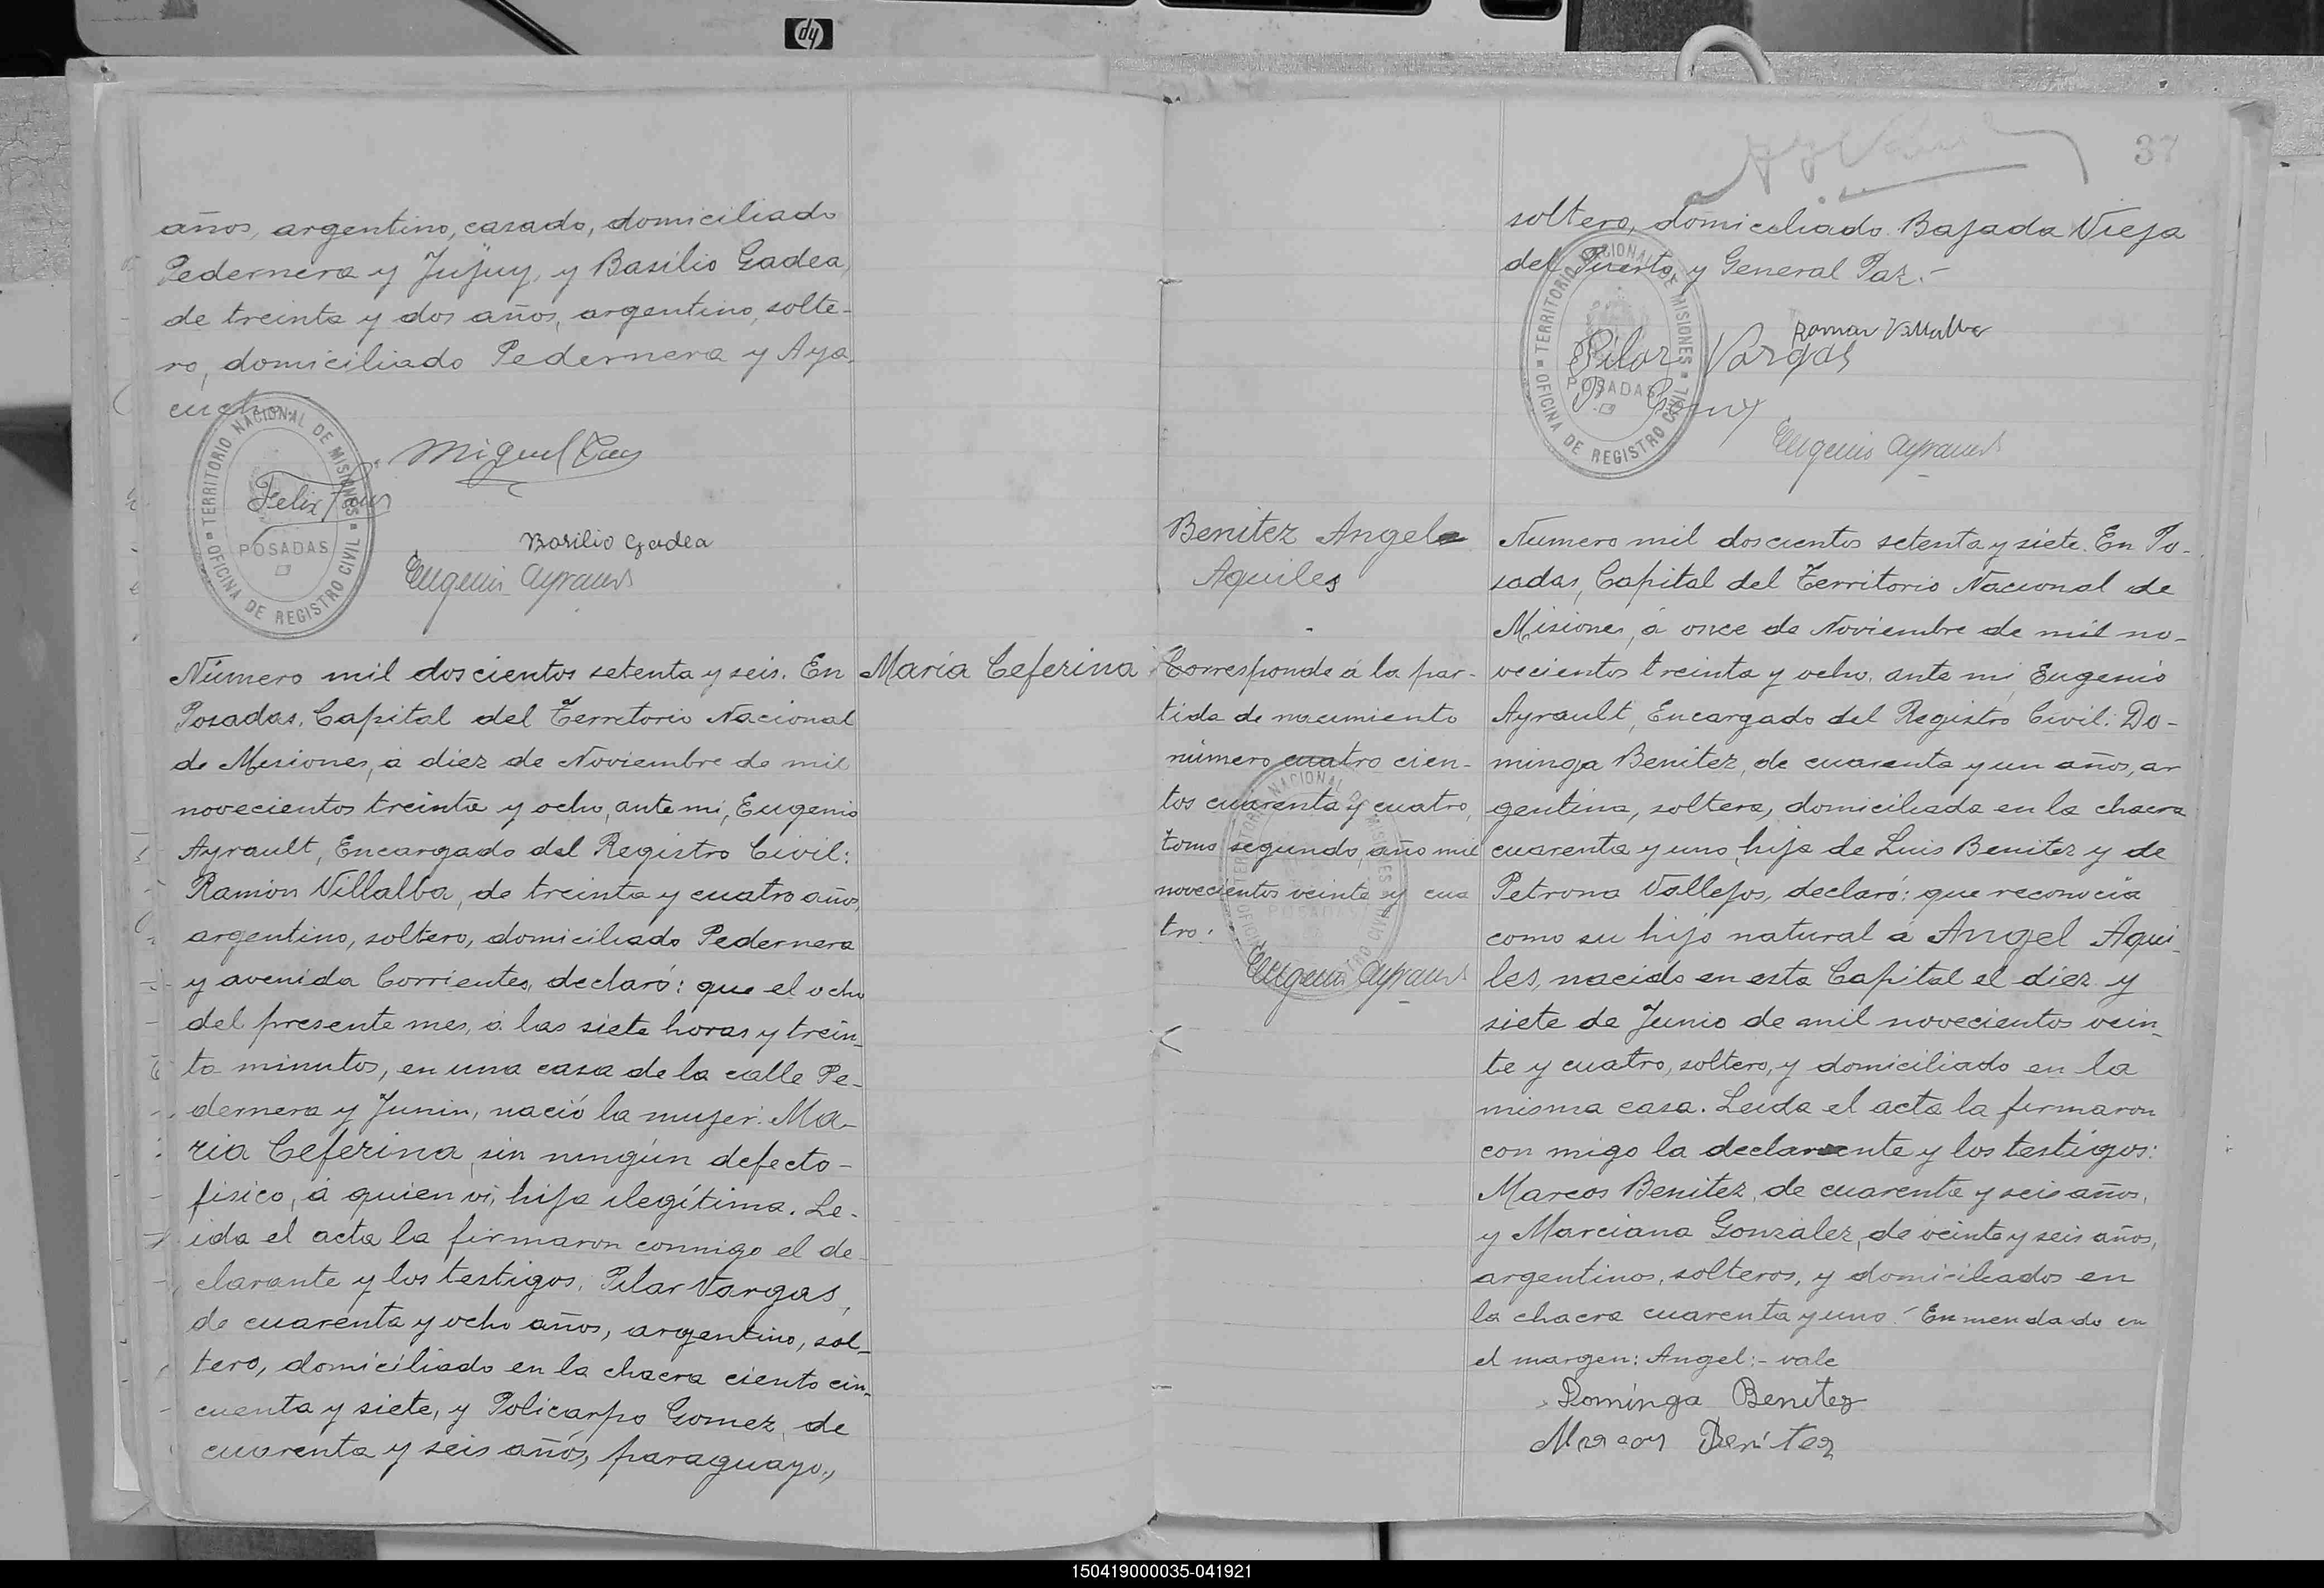 hp
años, argentino, casado, domiciliado
Pedernera y Jujuy, y Basilio Gadea,
de treinta y dos años, argentino, solte-
ro, domiciliado Pedernera y Aya-
cucho.
TERRITORIO NACIONAL DE MISIONES
OFICINA DE REGISTRO CIVIL
POSADAS
Miguel
Felix
Basilio Gadea
Eugenio Ayrault
Número mil doscientos setenta y seis. En
Posadas, Capital del Territorio Nacional
de Misiones, á diez de Noviembre de mil
novecientos treinta y ocho, ante mi, Eugenio
Ayrault, Encargado del Registro Civil:
Ramón Villalba, de treinta y cuatro años,
argentino, soltero, domiciliado Pedernera
y avenida Corrientes, declaró: que el ocho
del presente mes, á las siete horas y trein-
ta minutos, en una casa de la calle Pe-
dernera y Junin, nació la mujer: Ma-
ria Ceferina, sin ningún defecto-
fisico, á quien vi, hija ilegítima. Le-
ida el acta la firmaron conmigo el de-
clarante y los testigos, Pilar Vargas,
de cuarenta y ocho años, argentino, sol-
tero, domiciliado en la chacra ciento cin-
cuenta y siete, y Policarpo Gomez, de
cuarenta y seis años, paraguayo,
María Ceferina
37
soltero, domiciliado Bajada Vieja
del Puerto y General Paz.-
TERRITORIO NACIONAL DE MISIONES
OFICINA DE REGISTRO CIVIL
POSADAS
Ramon Villalba
Pilar Vargas
P. Gomez
Eugenio Ayrault
Benitez Angel
Aquiles
Corresponde á la par-
tida de nacimiento
número cuatro cien-
tos cuarenta y cuatro,
tomo segundo, año mil
novecientos veinte y cua
tro.
POSADAS
Eugenio Ayrault
Numero mil doscientos setenta y siete. En Po-
sadas, Capital del Territorio Nacional de
Misiones, á once de Noviembre de mil no-
vecientos treinta y ocho, ante mi, Eugenio
Ayrault, Encargado del Registro Civil: Do-
minga Benitez, de cuarenta y un años, ar
gentina, soltera, domiciliada en la chacra
cuarenta y uno, hija de Luis Benitez y de
Petrona Vallejos, declaró: que reconocía
como su hijo natural á Angel Aqui-
les, nacido en esta Capital el diez y
siete de Junio de mil novecientos vein-
te y cuatro, soltero, y domiciliado en la
misma casa. Leida el acta la firmaron
con migo la declarante y los testigos:
Marcos Benitez, de cuarenta y seis años,
y Marciana Gonzalez, de veinte y seis años,
argentinos, solteros, y domiciliados en
la chacra cuarenta y uno. Enmendado en
el margen: Angel:- vale
Dominga Benitez
Marcos Benitez
150419000035-041921